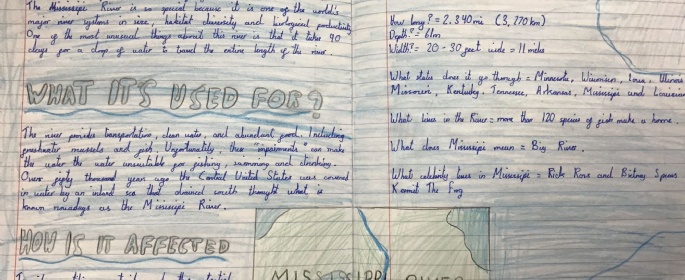 The Mississippi River is so special because it is one of the world's
major river systems in size, habitat diversity and biological productivity
One of the most unusual things about this river is that it takes 90
days for a drop of water to travel the entire length of the river.
WHAT IT'S USED FOR?
The river provides transportation, clean water, and abundant food. Including
freshwater mussels and fish. Unfortunatly, these "impairments" can make
the water the water unsuitable for fishing, swimming and drinking.
Over fifty thousand year ago the Central United States was covered
in water by an inland sea that drained south throught what is
known nowadays as the Missisipi River.
HOW IS IT AFFECTED
How long? = 2,340 mi (3,770 km)
Depth? =
Width? = 20 - 30 feet wide = 11 miles
What state does it go through = Minnesota, Wisconsin, Iowa, Illinois
Missouri, Kentucky, Tennessee, Arkansas, Missisipi and Louisiana
What lives in the River = more than 120 species of fish make a home.
What does Missisipi mean = Big River.
What celebrity lives in Missisipi = Rick Ross and Britney Spears
Kermit The Frog
MISSISSIPPI RIVER